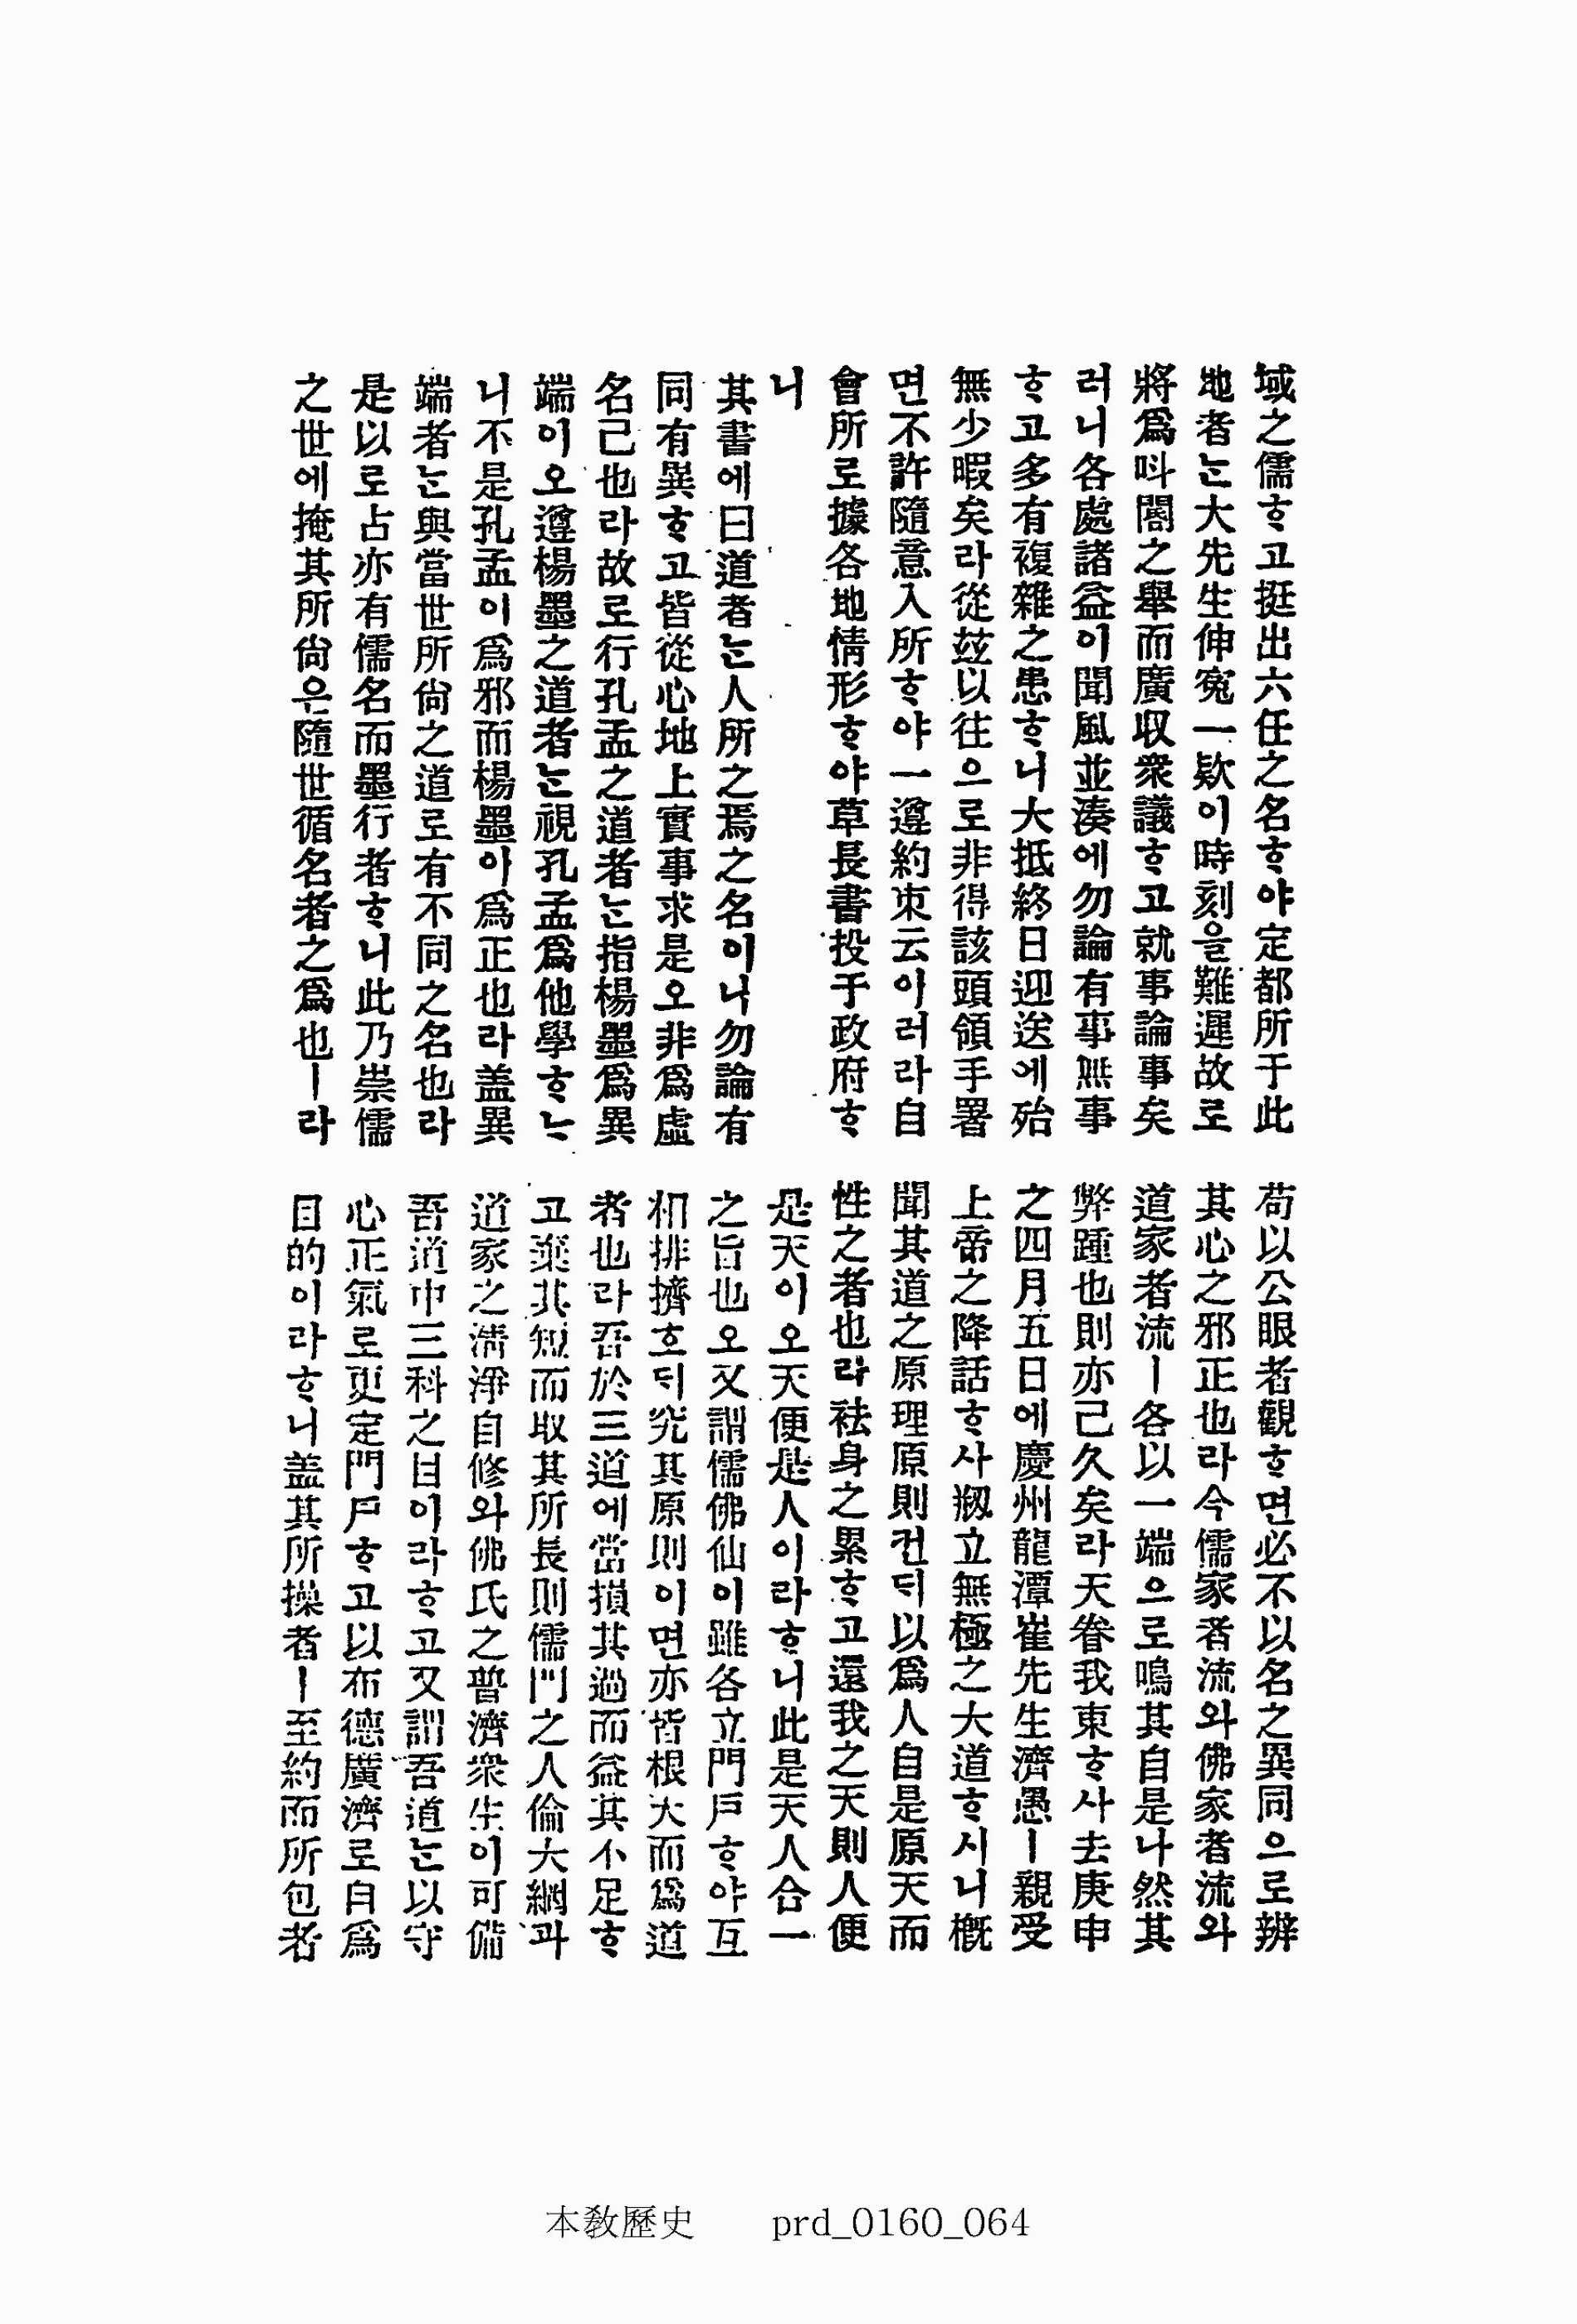 域之儒ᄒᆞ고挺出六任之名ᄒᆞ야定都所于此
地者ᄂᆞᆫ大先生伸寃一欵이時刻을難遲故로
將爲呌閤之擧而廣収衆議ᄒᆞ고就事論事矣
러니各處諸益이聞風並湊에勿論有事無事
ᄒᆞ고多有複雜之患ᄒᆞ니大抵終日迎送에殆
無少暇矣라從玆以往으로非得該頭領手署
면不許隨意入所ᄒᆞ야一遵約束云이러라自
會所로據各地情形ᄒᆞ야草長書投于政府ᄒᆞ
니
其書에曰道者ᄂᆞᆫ人所之焉之名이니勿論有
同有異ᄒᆞ고皆從心地上實事求是오非爲虛
名己也라故로行孔孟之道者ᄂᆞᆫ指楊墨爲異
端이오遵楊墨之道者ᄂᆞᆫ視孔孟爲他學ᄒᆞᄂᆞ
니不是孔孟이爲邪而楊墨아爲正也라盖異
端者ᄂᆞᆫ與當世所尙之道로有不同之名也라
是以로占亦有儒名而墨行者ᄒᆞ니此乃崇儒
之世에掩其所尙은隨世循名者之爲也ㅣ라
苟以公眼者觀ᄒᆞ면必不以名之異同으로辨
其心之邪正也라今儒家者流와佛家者流와
道家者流ㅣ各以一端으로鳴其自是나然其
弊踵也則亦己久矣라天眷我東ᄒᆞ사去庚申
之四月五日에慶州龍潭崔先生濟愚ㅣ親受
上帝之降話ᄒᆞ사刱立無極之大道ᄒᆞ시니槪
聞其道之原理原則컨ᄃᆡ以爲人自是原天而
性之者也라袪身之累ᄒᆞ고還我之天則人便
是天이오天便是人이라ᄒᆞ니此是天人合一
之旨也오又謂儒佛仙이雖各立門戶ᄒᆞ야互
相排擠호ᄃᆡ究其原則이면亦皆根大而爲道
者也라吾於三道에當損其過而益其不足ᄒᆞ
고棄其短而取其所長則儒門之人倫大綱과
道家之淸淨自修와佛氏之普濟衆生이可備
吾道中三科之目이라ᄒᆞ고又謂吾道ᄂᆞᆫ以守
心正氣로更定門戶ᄒᆞ고以布德廣濟로自爲
目的이라ᄒᆞ니盖其所操者ㅣ至約而所包者
本敎歷史 prd_0160_064